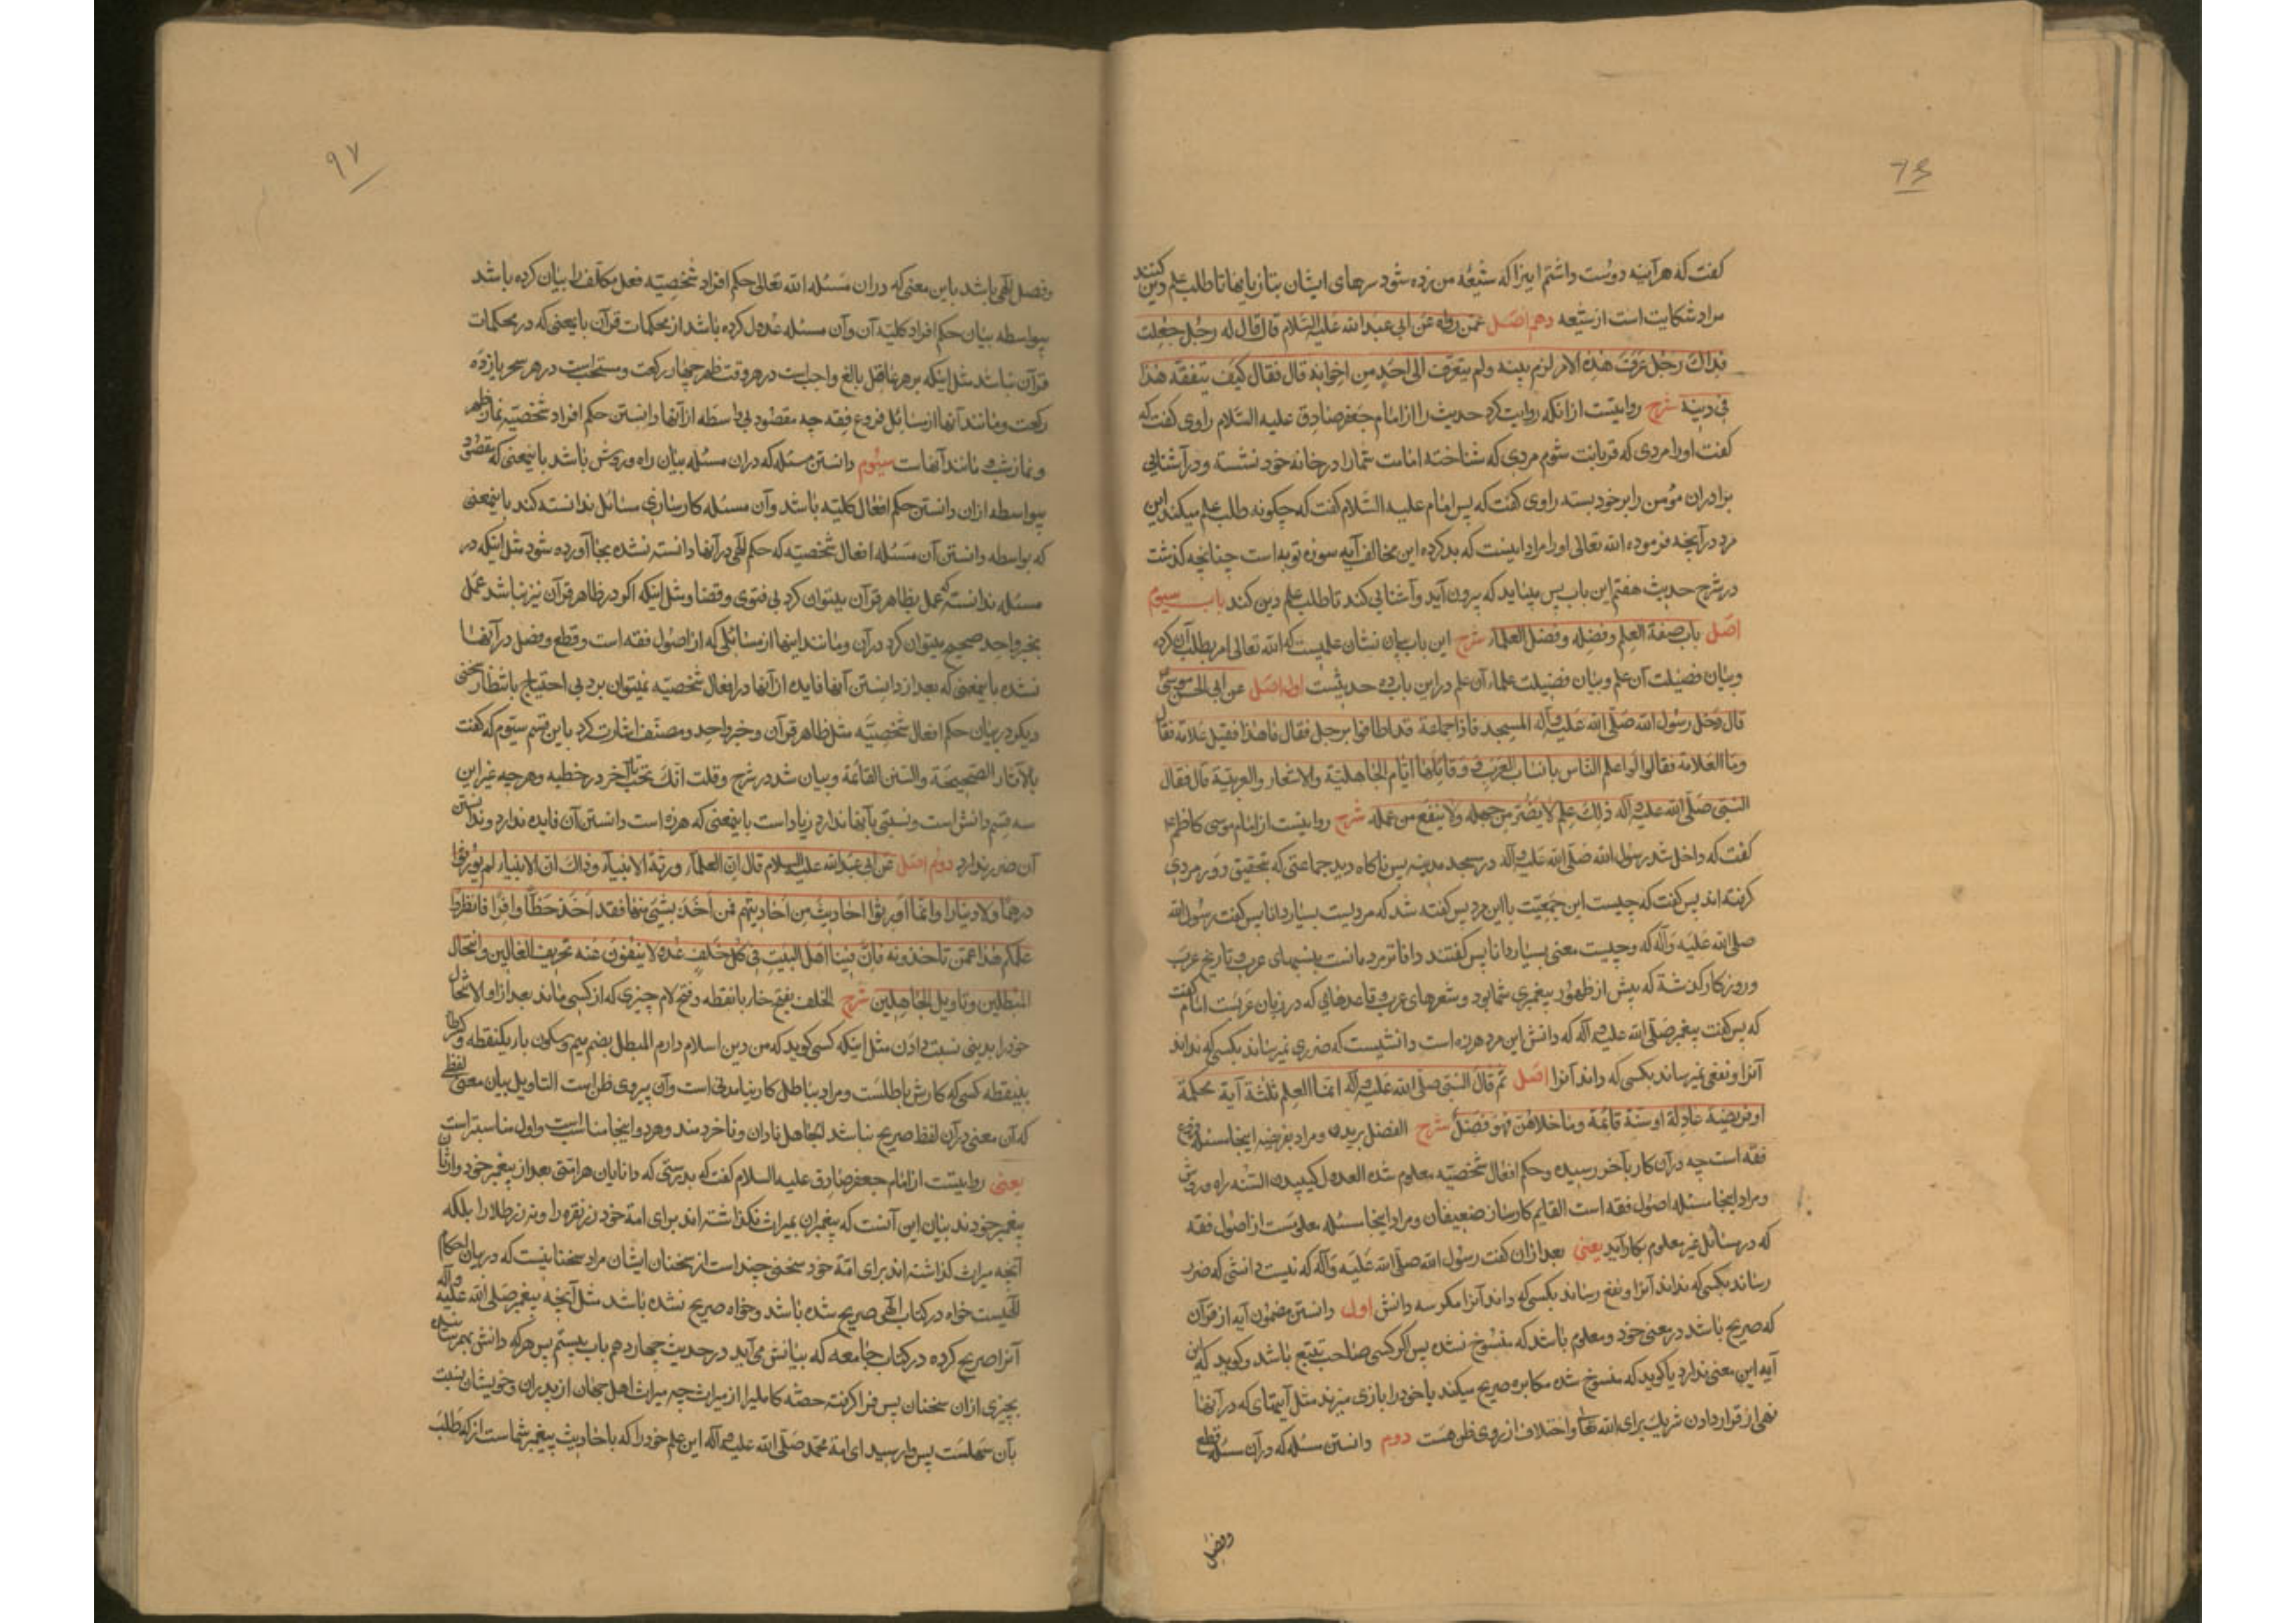 گفت که هر آینه دوست داشتم اینرا که شیعهٔ من زده شود سرهای ایشان بتازیانها تا طلب علم دین کنند
مراد شکایت است از شیعه دهم اصل عمن رواه عن ابی عبد الله علیه السلام قال قال له رجل جعلت
فداك رجل عرف هذا الامر لزم بیته ولم یتعرف الی احد من اخوانه قال فقال کیف یتفقه هذا
فی دینه شرح روایتست از انکه روایت کرد حدیث را از امام جعفر صادق علیه السلام راوی گفت که
گفت او را مردی که قربانت شوم مردی که شناخته امامت شما را در خانه خود نشسته و در آشنایی
برادران مؤمن را بر خود بسته راوی گفت که پس امام علیه السلام گفت که چگونه طلب علم میکند این
مرد در آنچه فرموده الله تعالی او را مراد اینست که بد کرده این مخالف آیه سوره توبه است چنانچه گذشت
در شرح حدیث هفتم این باب پس میباید که بیرون آید و آشنایی کند تا طلب علم دین کند باب سیوم
اصل باب صفة العلم وفضله وفضل العلماء شرح این باب بیان نشان علمیست که الله تعالی امر بطلب آن کرده
وبیان فضیلت آن علم وبیان فضیلت علماء آن علم در این باب ده حدیثست اول اصل عن ابی الحسن موسی
قال دخل رسول الله صلی الله علیه وآله المسجد فاذا جماعة قد اطافوا برجل فقال ما هذا فقیل علامة فقال
وما العلامة فقالوا له اعلم الناس بانساب العرب و وقایعها وایام الجاهلیة والاشعار والعربیة قال فقال
النبی صلی الله علیه وآله ذلك علم لا یضر من جهله ولا ینفع من علمه شرح روایتست از امام موسی کاظم ع
گفت که داخل شد رسول الله صلی الله علیه وآله در مسجد مدینه پس ناگاه دید جماعتی که بتحقیق دور مردی
گرفته اند پس گفت که چیست این جمعیت با این مرد پس گفته شد که مردیست بسیار دانا پس گفت رسول الله
صلی الله علیه وآله که وچیست معنی بسیار دانا پس گفتند داناتر مردمانست بنسبهای عرب و تاریخ عرب
و روزگار گذشته که پیش از ظهور پیغمبری شما بود و شعرهای عرب و قاعدهایی که در زبان عربست امام گفت
که پس گفت پیغمبر صلی الله علیه وآله که دانش این مرد هرزه است دانشیست که ضرری نمیرساند بکسی که نداند
آنرا و نفعی نمیرساند بکسی که داند آنرا اصل ثم قال النبی صلی الله علیه وآله انما العلم ثلثة آیة محکمة
او فریضة عادلة او سنة قائمة وما خلاهن فهو فضل شرح الفضل بریدن ومراد بفریضه اینجا مسئله فروع
فقه است چه در آن کار بآخر رسیده وحکم افعال شخصیه معلوم شده العدل السنه راه وروش
ومراد اینجا مسئله اصول فقه است القایم کارساز ضعیفان ومراد اینجا مسئله معلومست از اصول فقه
که در مسائل غیر معلوم بکار آید یعنی بعد از ان گفت رسول الله صلی الله علیه وآله که نیست دانشی که ضرر
رساند بکسی که نداند آنرا و نفع رساند بکسی که داند آنرا مگر سه دانش اول دانستن مضمون آیه از قرآن
که صریح باشد در معنی خود و معلوم باشد که منسوخ نشده پس اگر کسی صاحب تتبع باشد وگوید که این
آیه این معنی ندارد یا گوید که منسوخ شده مکابره صریح میکند یا خود را بازی میزند مثل آیتهای که در آنها
نهی از قرار دادن شریك برای الله تعالی واختلاف از روی ظن هست دوم دانستن مسئله که در آن مسئله قطع
وفصل
۹۷
وفصل الهی باشد باین معنی که در ان مسئله الله تعالی حکم افراد شخصیه فعل مکلف را بیان کرده باشد
بیواسطه بیان حکم افراد کلیه آن وآن مسئله عدول کرده باشد از محکمات قرآن باینمعنی که در محکمات
قرآن نباشد مثل اینکه بر هر عاقل بالغ واجبست در هر وقت ظهر چهار رکعت ومستحبست در هر سحر یازده
رکعت ومانند آنها از مسائل فروع فقه چه مقصود بی واسطه از آنها دانستن حکم افراد شخصیه نماز ظهر
و نماز شب و مانند آنهاست سیوم دانستن مسئله که در ان مسئله بیان راه وروش باشد باینمعنی که مقصود
بیواسطه از ان دانستن حکم افعال کلیه باشد وآن مسئله کارسازی مسائل ندانسته کند باینمعنی
که بواسطه دانستن آن مسئله افعال شخصیه که حکم الهی در آنها دانسته نشده بجا آورده شود مثل اینکه در
مسئله ندانسته عمل بظاهر قرآن میتوان کرد بی فتوی وقضا ومثل اینکه اگر در ظاهر قرآن نیز نباشد عمل
بخبر واحد صحیح میتوان کرد در آن ومانند اینها از مسائلی که از اصول فقه است وقطع وفصل در آنها
نشده باینمعنی که بعد از دانستن آنها فایده از آنها در افعال شخصیه نمیتوان برد بی احتیاج بانتظار سخنی
دیگر در بیان حکم افعال شخصیه مثل ظاهر قرآن وخبر واحد ومصنف اشارت کرد باین قسم سیوم که گفت
بالآثار الصحیحة والسنن القائمة وبیان شد در شرح وقلت انك تحب تا آخر در خطبه وهر چه غیر این
سه قسم دانش است ونسبتی بآنها ندارد زیاد است باینمعنی که هرزه است دانستن آن فایده ندارد وندانستن
آن ضرر ندارد دوم اصل عن ابی عبد الله علیه السلام قال ان العلماء ورثة الانبیاء وذاك ان الانبیاء لم یورثوا
درهما ولا دینارا وانما اورثوا احادیث من احادیثهم فمن اخذ بشئ منها فقد اخذ حظا وافرا فانظروا
علمکم هذا عمن تاخذونه فان فینا اهل البیت فی کل خلف عدولا ینفون عنه تحریف الغالین وانتحال
المبطلین وتاویل الجاهلین شرح الخلف بفتح خاء با نقطه وفتح لام چیزی که از کسی ماند بعد از او الانتحال
خود را بدینی نسبت دادن مثل اینکه کسی گوید که من دین اسلام دارم المبطل بضم میم وسکون باء یکنقطه وکسر طاء
بینقطه کسی که کارش باطلست ومراد بباطل کار نیامدنی است وآن پیروی ظن است التاویل بیان معنی لفظی
که آن معنی در آن لفظ صریح نباشد الجاهل نادان وناخردمند وهر دو اینجا مناسبست واول مناسبتر است
یعنی روایتست از امام جعفر صادق علیه السلام گفت که بدرستی که دانایان هر امتی بعد از پیغمبر خود وارثان
پیغمبر خودند بیان این آنست که پیغمبران بمیراث نگذاشته اند برای امة خود زر نقره را و نه زر طلا را بلکه
آنچه میراث گذاشته اند برای امة خود سخنی چند است از سخنان ایشان مراد سخنانیست که در بیان احکام
الهیست خواه در کتاب الهی صریح شده باشد وخواه صریح نشده باشد مثل آنچه پیغمبر صلی الله علیه وآله
آنرا صریح کرده در کتاب جامعه که بیانش می آید در حدیث چهاردهم باب بیستم پس هر که دانش بهم رسانیده
بچیزی از ان سخنان پس فرا گرفته حصه کاملیرا از میراث چه میراث اهل جهان از پدران وخویشان نسبت
بآن سهلست پس وارسید ای امة محمد صلی الله علیه وآله این علم خود را که باحادیث پیغمبر شماست از که طلب